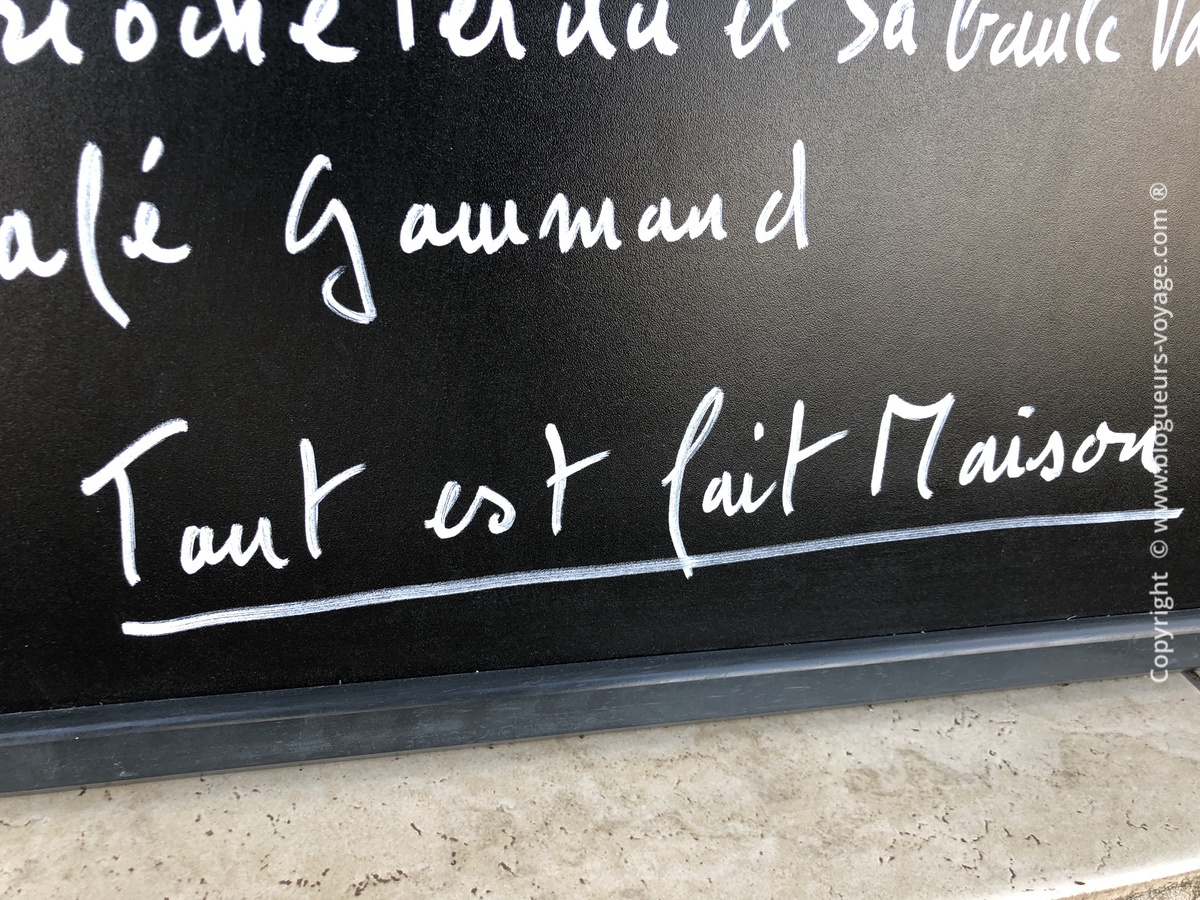 rioche Perdu et sa Boule Va
afé Gourmand
Tout est fait Maison
Copyright © www.blogueurs-voyage.com ®